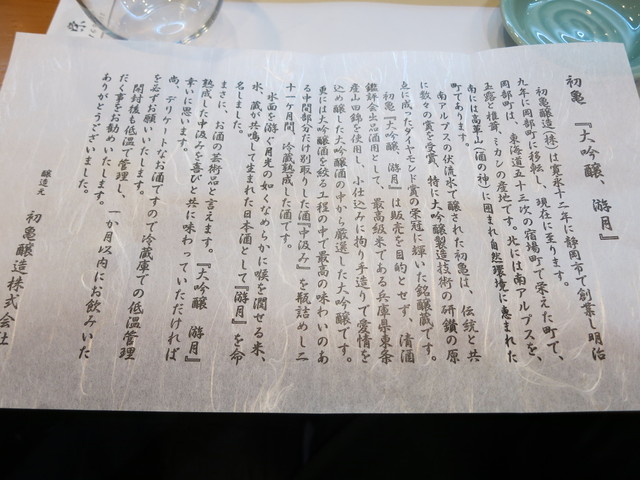 初亀 『大吟醸、游月』
初亀醸造(株)は寛永十二年に静岡市で創業し明治
九年に岡部町に移転し、現在に至ります。
岡部町は、東海道五十三次の宿場町で栄えた町で、
玉露と椎茸、ミカンの産地です。北には南アルプスを、
南には高草山(酒の神)に囲まれ自然環境に恵まれた
町であります。
南アルプスの伏流水で醸された初亀は、伝統と共
に数々の賞を受賞、特に大吟醸製造技術の研鑽の原
点に成ったダイヤモンド賞の栄冠に輝いた銘醸蔵です。
初亀『大吟醸、游月』は販売を目的とせず、清酒
鑑評会出品酒用として、最高級米である兵庫県東条
産山田錦を使用し、小仕込みに拘り手造りで愛情を
込め醸した大吟醸酒の中から厳選した大吟醸です。
更には大吟醸酒を絞る工程の中で最高の味わいのあ
る中間部分だけ別取りした酒『中汲み』を瓶詰めし二
十一ケ月間、冷蔵熟成した酒です。
水面を游ぐ月光の如くなめらかに喉を潤せる米、
水、蔵が共鳴して生まれた日本酒として『游月』を命
名しました。
まさに、お酒の芸術品と言えます。『大吟醸 游月』
熟成した中汲みを喜びと共に味わっていただければ
幸いに思います。
尚、デリケートなお酒ですので冷蔵庫での低温管理
を必ずお願いいたします。
開封後も低温で管理し、一か月以内にお飲みいた
だく事をお勧めいたします。
ありがとうございました。
醸造元 初亀醸造株式会社